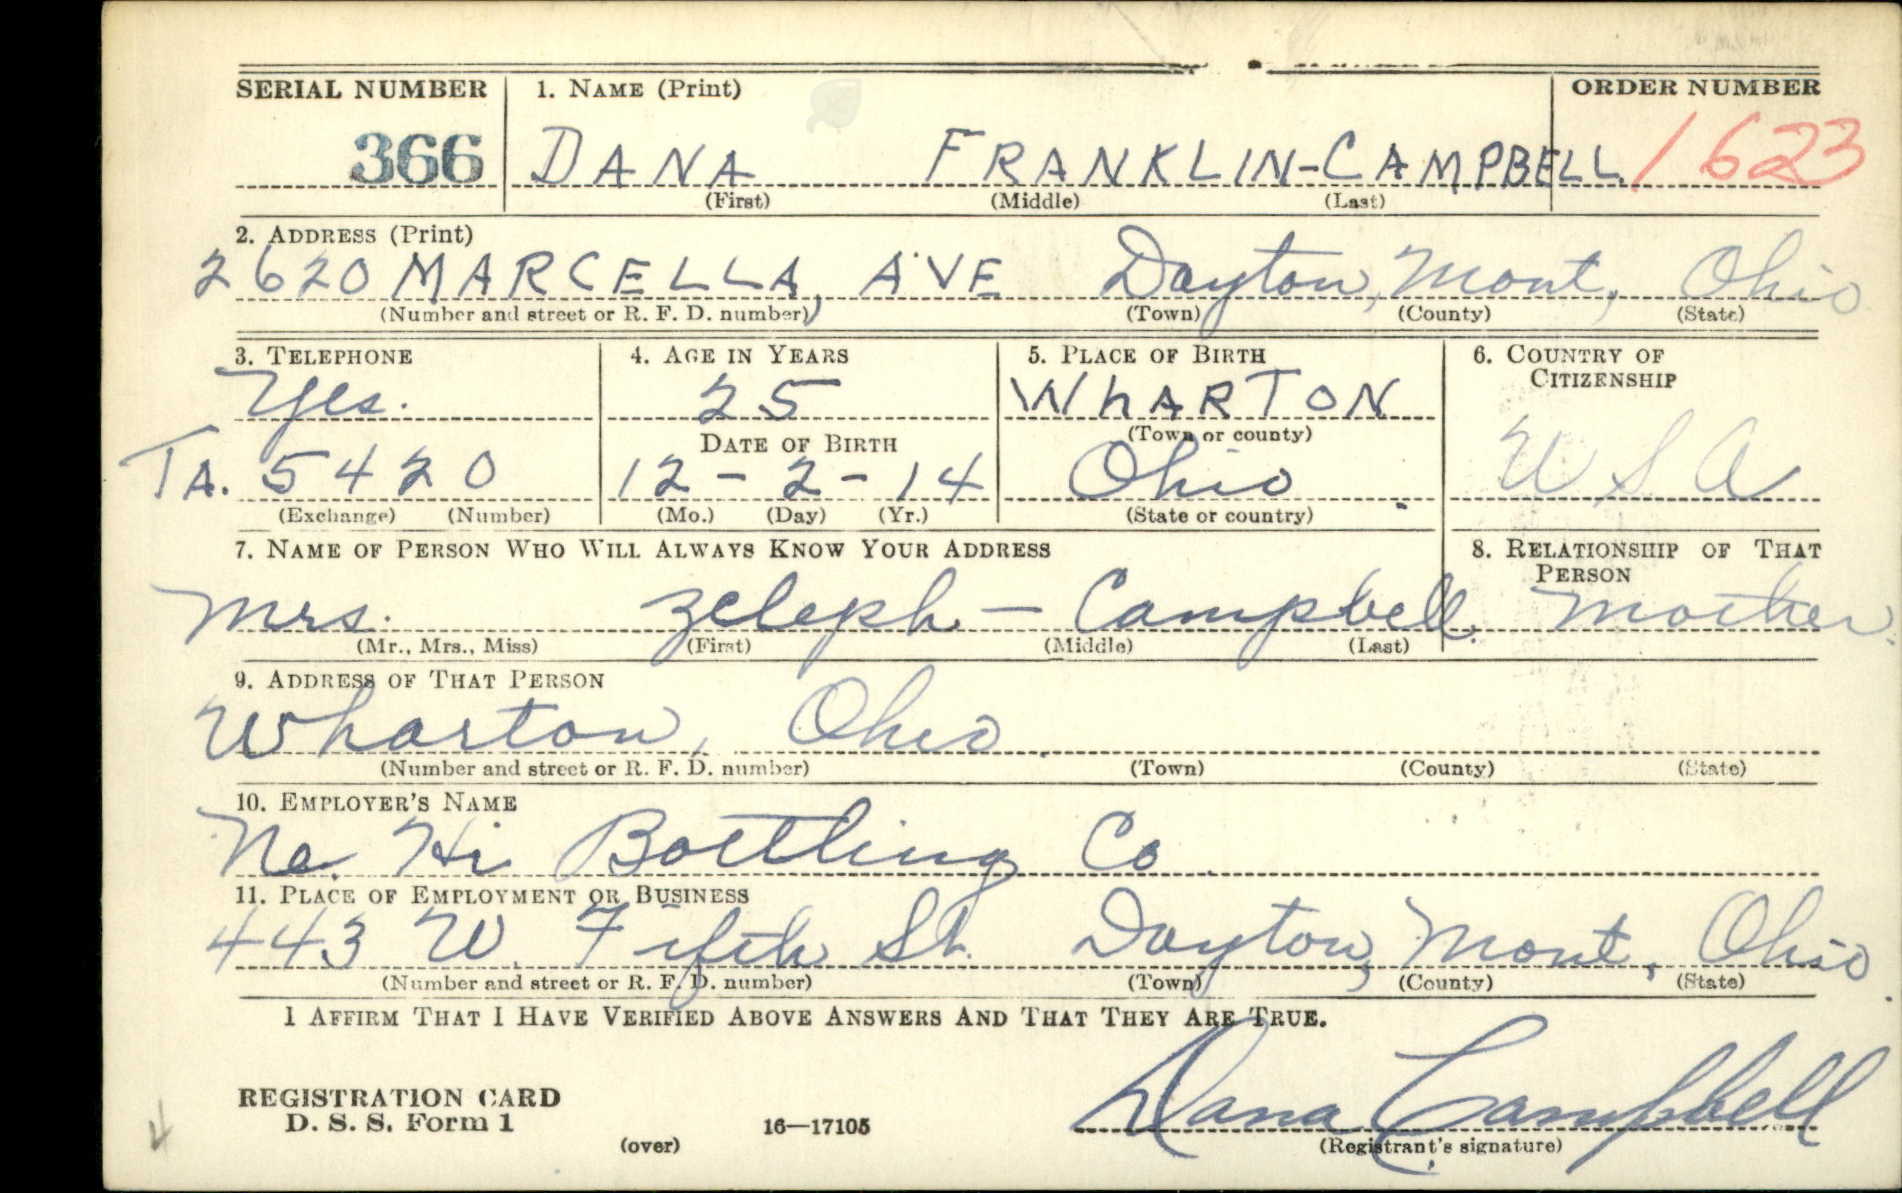 SERIAL NUMBER 1. NAME (Print) ORDER NUMBER
366 DANA FRANKLIN-CAMPBELL. 1623
(First) (Middle) (Last)
2. ADDRESS (Print)
2620 MARCELLA, AVE Dayton, Mont, Ohio
(Number and street or R. F. D. number) (Town) (County) (State)
3. TELEPHONE 4. AGE IN YEARS 5. PLACE OF BIRTH 6. COUNTRY OF
CITIZENSHIP
Yes. 25 WhARTON
DATE OF BIRTH (Town or county)
TA. 5420 12-2-14 Ohio. USA
(Exchange) (Number) (Mo.) (Day) (Yr.) (State or country)
7. NAME OF PERSON WHO WILL ALWAYS KNOW YOUR ADDRESS 8. RELATIONSHIP OF THAT
PERSON
Mrs. Zeleph - Campbell. Mother.
(Mr., Mrs., Miss) (First) (Middle) (Last)
9. ADDRESS OF THAT PERSON
Wharton, Ohio.
(Number and street or R. F. D. number) (Town) (County) (State)
10. EMPLOYER'S NAME
Ne. Hi Bottling Co.
11. PLACE OF EMPLOYMENT OR BUSINESS
443 W. Fifth St. Dayton, Mont, Ohio.
(Number and street or R. F. D. number) (Town) (County) (State)
I AFFIRM THAT I HAVE VERIFIED ABOVE ANSWERS AND THAT THEY ARE TRUE.
REGISTRATION CARD
D. S. S. Form 1 16—17105 Dana Campbell
(over) (Registrant's signature)